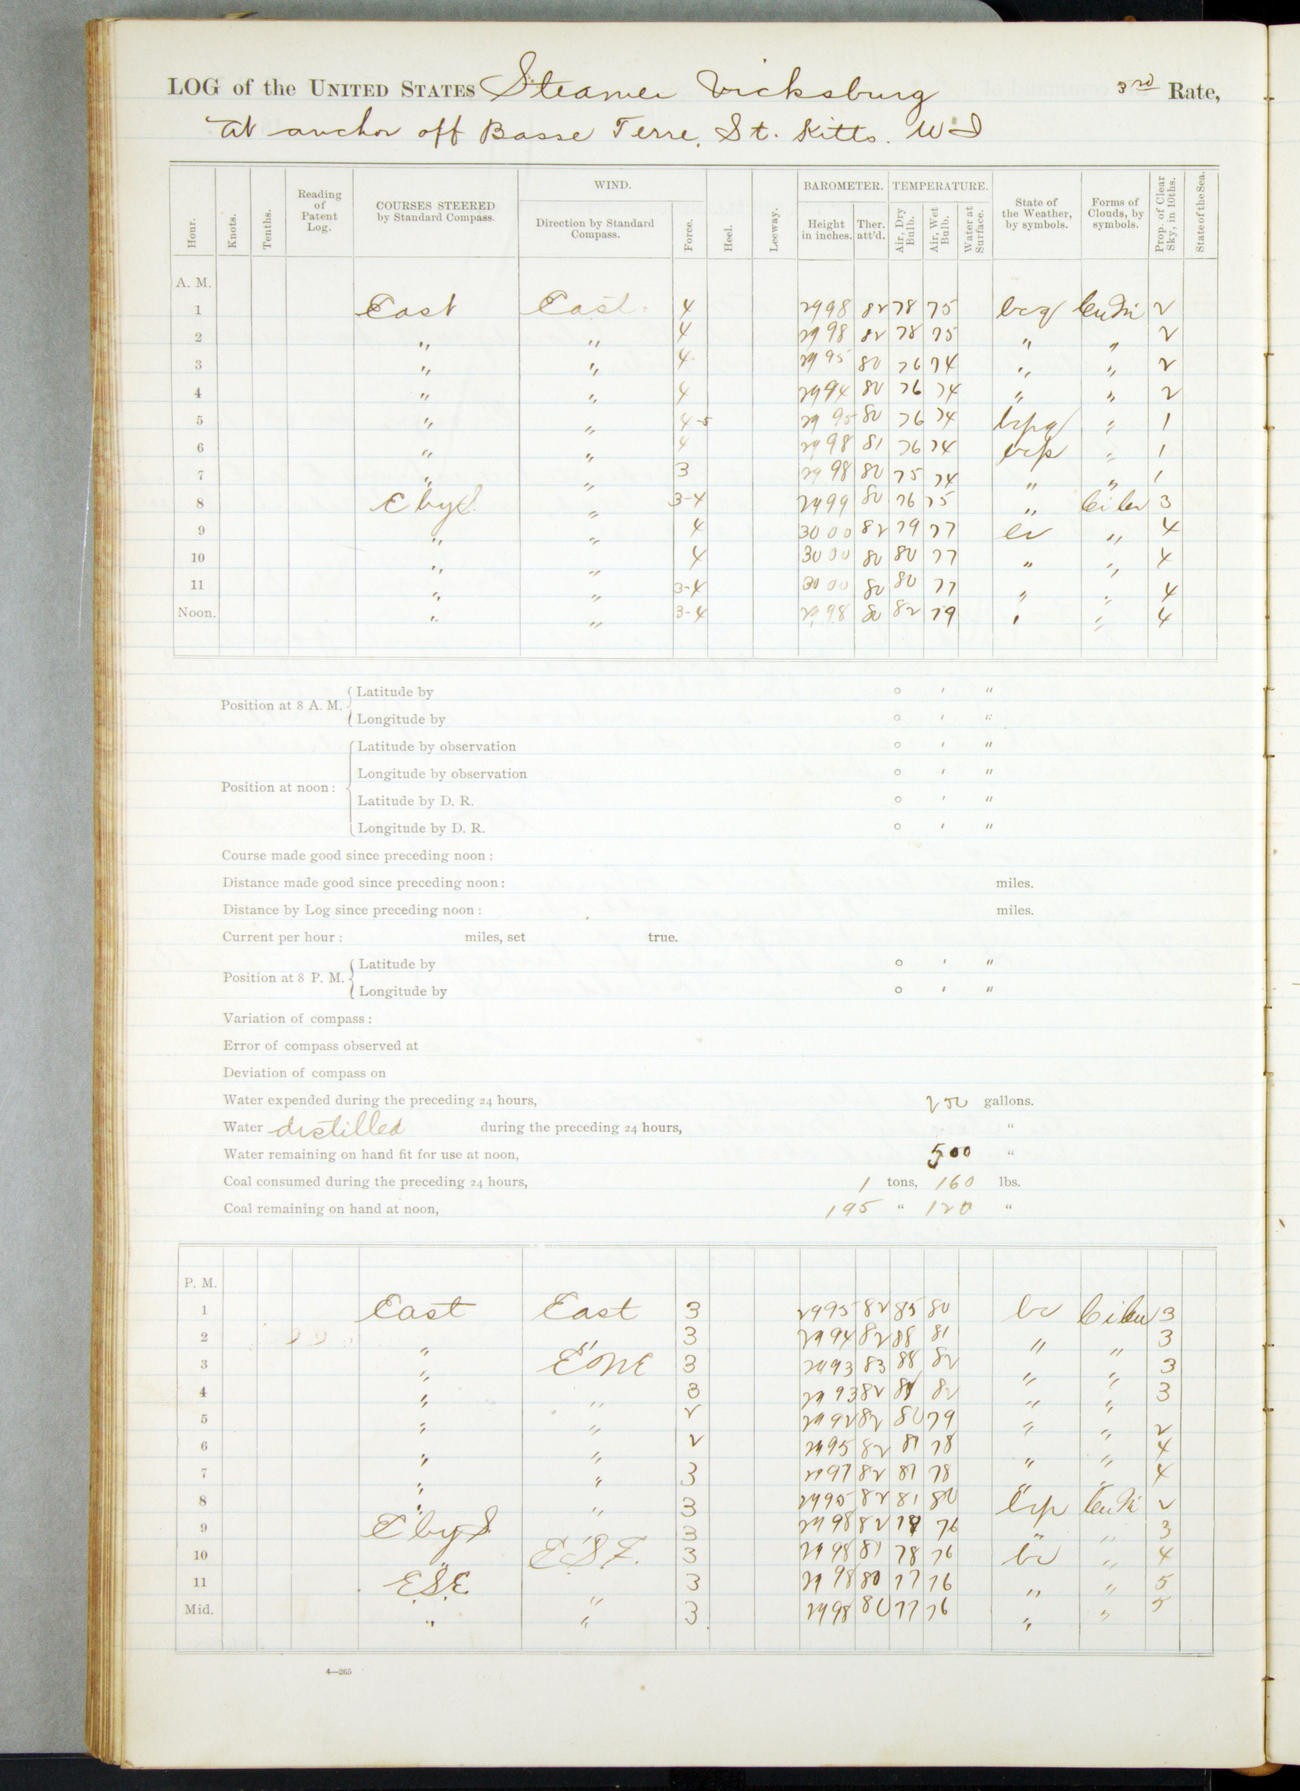 LOG of the UNITED STATES Steamer Vicksburg 3rd Rate,
At anchor off Basse Terre, St. Kitts. W I
Hour. Knots. Tenths. Reading of Patent Log. COURSES STEERED by Standard Compass. WIND. Direction by Standard Compass. Force. Heel. Leeway. BAROMETER. Height in inches. Ther. att'd. TEMPERATURE. Air, Dry Bulb. Air, Wet Bulb. Water at Surface. State of the Weather, by symbols. Forms of Clouds, by symbols. Prop. of Clear Sky, in 10ths. State of the Sea.
A. M.
1 East East 4 29 98 82 78 75 bcq Cu Ni 2
2 " " 4 29 98 82 78 75 " " 2
3 " " 4 29 95 80 76 74 " " 2
4 " " 4 29 94 80 76 74 " " 2
5 " " 4-5 29 95 80 76 74 bcpq " 1
6 " " 4 29 98 81 76 74 bcp " 1
7 " " 3 29 98 80 75 74 " " 1
8 E by S. " 3-4 29 99 80 76 75 " Ci Cu 3
9 " " 4 30 00 82 79 77 " 4
10 " " 4 30 00 80 80 77 " " 4
11 " " 3-4 30 00 80 80 77 " " 4
Noon. " " 3-4 29 98 80 82 79 " " 4
Position at 8 A. M. Latitude by ° ' "
Longitude by ° ' "
Position at noon: Latitude by observation ° ' "
Longitude by observation ° ' "
Latitude by D. R. ° ' "
Longitude by D. R. ° ' "
Course made good since preceding noon:
Distance made good since preceding noon: miles.
Distance by Log since preceding noon: miles.
Current per hour: miles, set true.
Position at 8 P. M. Latitude by ° ' "
Longitude by ° ' "
Variation of compass:
Error of compass observed at
Deviation of compass on
Water expended during the preceding 24 hours, 250 gallons.
Water distilled during the preceding 24 hours, "
Water remaining on hand fit for use at noon, 500 "
Coal consumed during the preceding 24 hours, 1 tons, 160 lbs.
Coal remaining on hand at noon, 195 " 120 "
P. M.
1 East East 3 29 95 82 85 80 bc Ci Cu 3
2 " " 3 29 94 82 88 81 " " 3
3 " ENE 3 29 93 83 88 82 " " 3
4 " " 3 29 93 82 82 " " 3
5 " " 2 29 92 82 80 79 " " 2
6 " " 2 29 95 82 81 78 " " 4
7 " " 3 29 97 82 81 78 " " 4
8 " " 3 29 95 82 81 80 bcp Cu Ni 2
9 E by S " 3 29 98 82 76 " " 3
10 " E.S.E. 3 29 98 81 78 76 bc " 4
11 E.S.E. " 3 29 98 80 77 76 " " 5
Mid. " " 3 29 98 80 77 76 " " 5
4—265